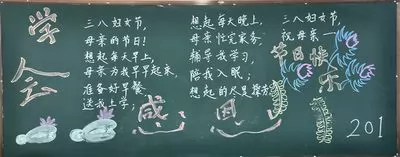 学会
感恩
三八妇女节,
母亲的节日!
想起每天早上,
母亲为我早早起床,
准备好早餐
送我上学;
想起每天晚上,
母亲忙完家务,
辅导我学习,
陪我入眠;
想起的尽是
三八妇女节,
祝母亲一
节日快乐
201